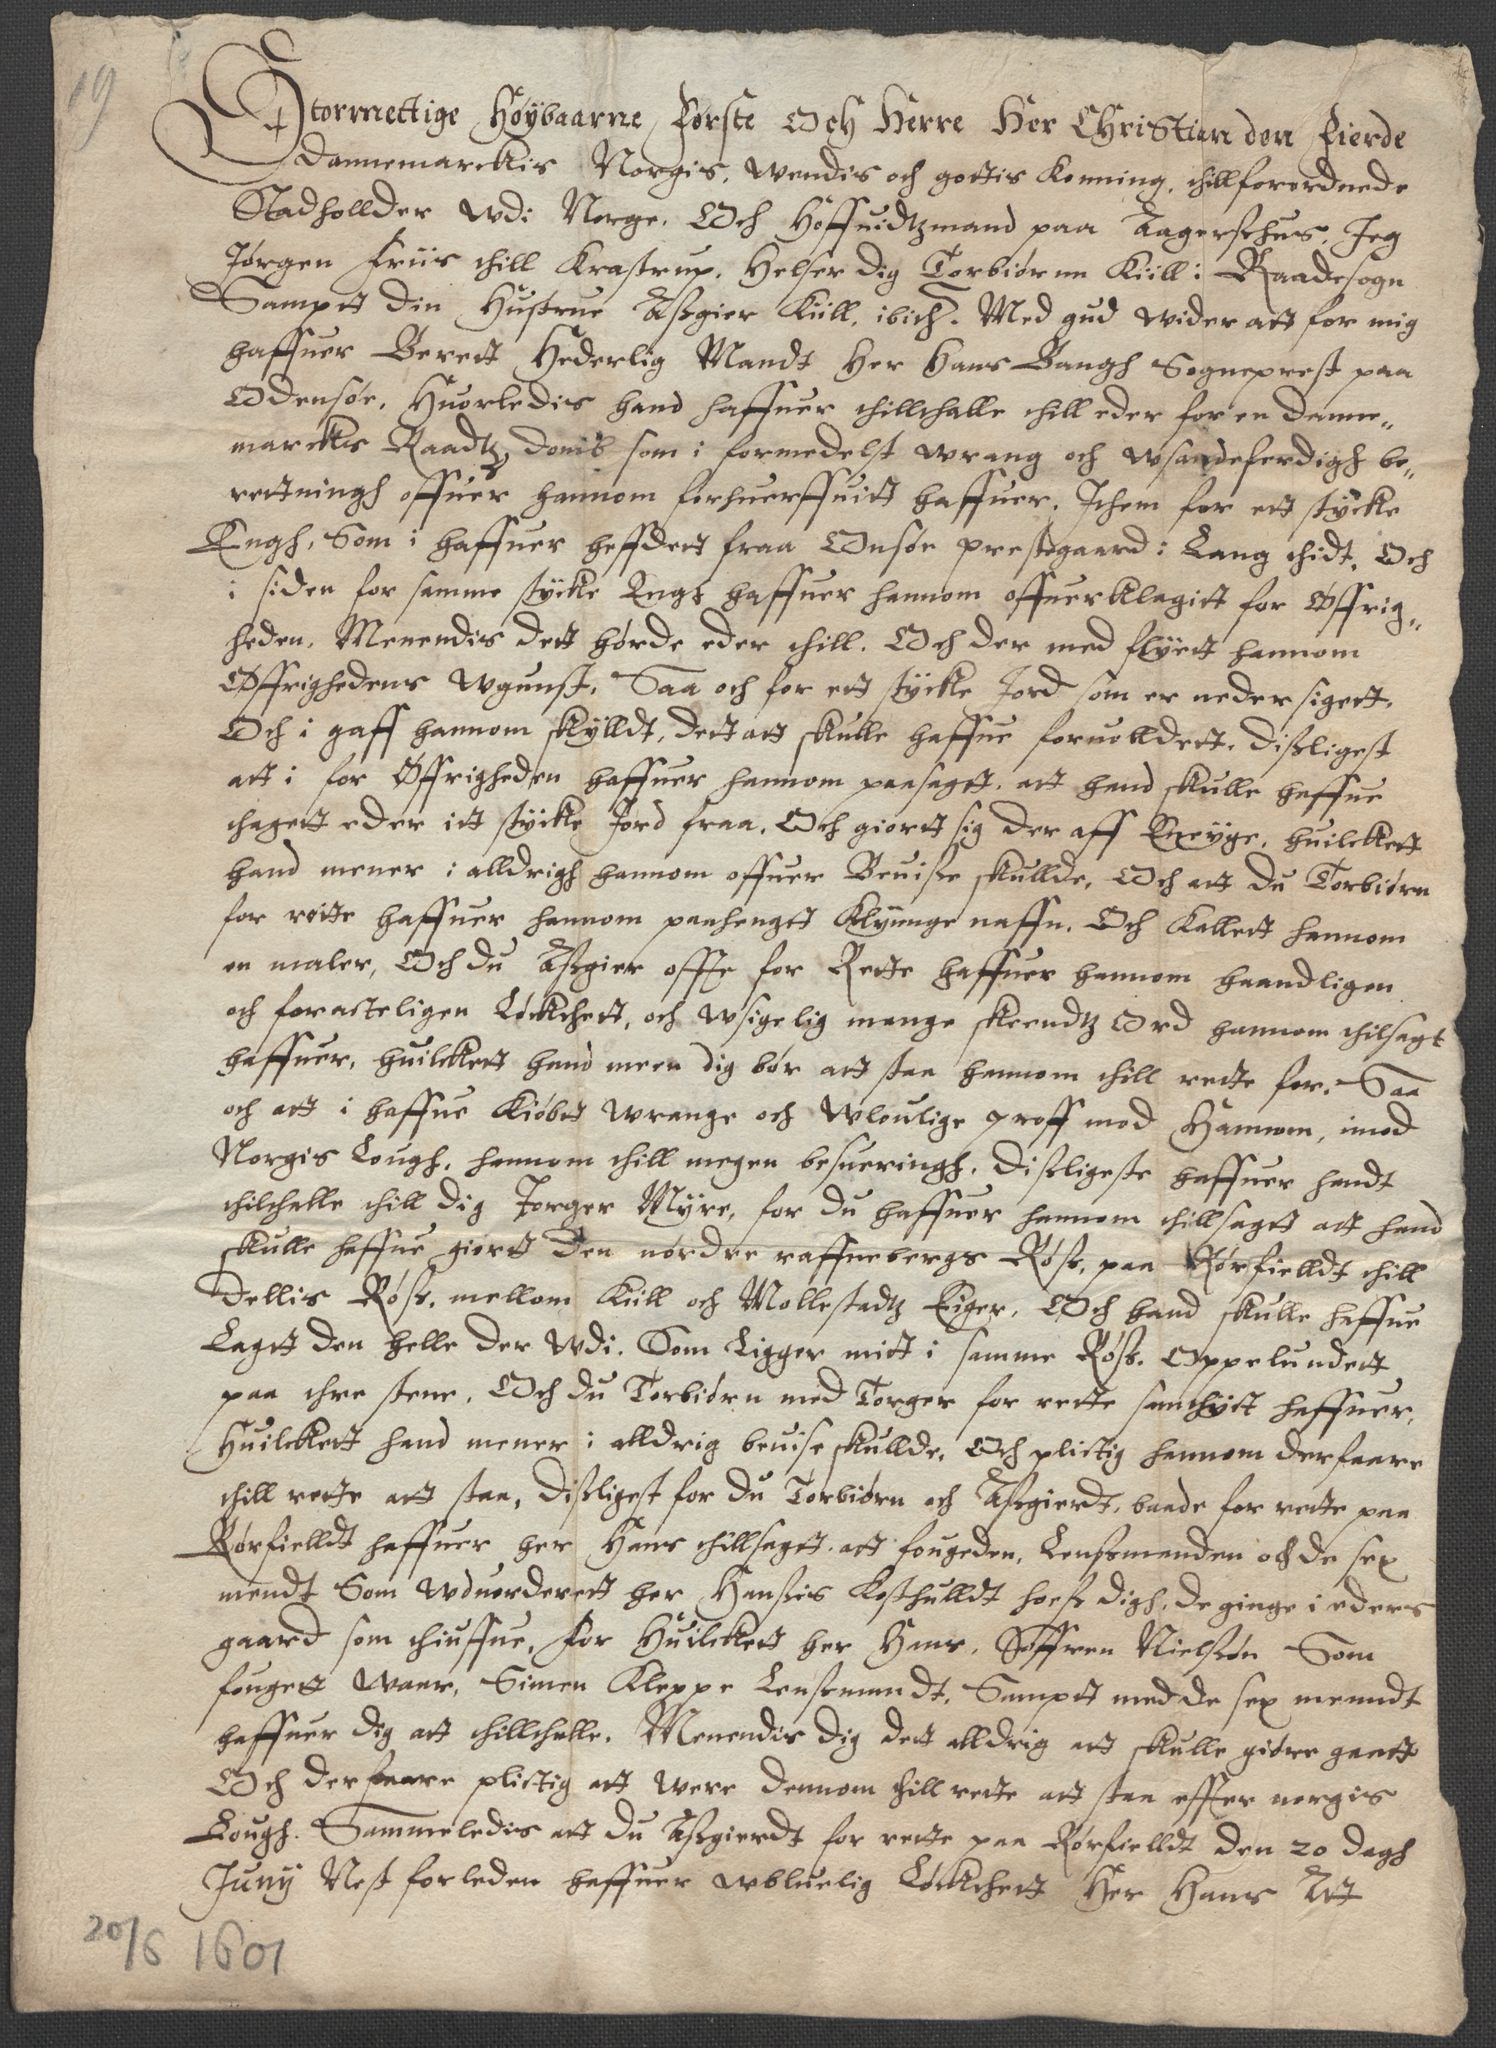 19
Stormectige Høybaarne Førsté Och Herre Her Christian den Fierde
Dannemarckis Norgis, Wendis och gottis Konning, thillforordnede
Stadhollder Wdi Norge. Och Höffuidtzmand paa Aagerszhus. Jeg
Jørgen Friis thill Krastrup. Helser dig Torbiørnn Kiill i Raadesogn
Sampt din Hustrue Aszgier Kiill, ibidh. Med gud wider att for mig
haffuer Berett Hederlig Mandt Her Hans Bangh Sogneprest paa
Odensøe, Huorledis hand haffuer thillthalle thill eder for en Danne„
marckis Raadtz domb som i formedelst wrang och wsandeferdigh be„
rettningh offuer hannom forhuerffuitt haffuer. Ithem for ett stycke
Engh, Som i haffuer heffdett fraa Onsøe prestegaard i Lang thidt, Och
i siden for samme stycke Engh haffuer hannom offuerklagitt for Øffrig„
heden, Menendis dett hørde eder thill. Och der med flyett hannom
Øffrighedens Wgunst, Saa och for ett stycke Jord som er neder sigett,
Och i gaff hannom skylldt, dett att skulle haffue foruolldett. Diszligest
att i for Øffrigheden haffuer hannom paasagtt, att hand skulle haffue
thagett eder itt stycke Jord fraa, Och giortt sig der aff Exeyge, huilckett
hand mener i alldrigh hannom offuer Beuisze skullde, Och att du Torbiørn
for rette haffuer hannom paahengtt Klyunge naffn, Och Kallett hannom
en maler, Och du Aszgier offte for Rette haffuer hannom haandligen
och foracteligen Løckthett, och Wsigelig mange skiendtz Ord hannom thilsagt
haffuer, huilckett hand meen dig bør att staa hannom thill rette for. Saa
och att i haffue Kiøbtt Wrange och Wlouglige proff mod Hannom, imod
Norgis Lough, hannom thill megen besueringh, Diszligeste haffuer handt
thilthalle thill dig Torger Myre, for du haffuer hannom thillsagtt att hand
skulle haffue giortt Den nørdre raffnebergs Røsz, paa Rørfielldt thill
Dellis Røsz, mellom Kiill och Mollestadtz Eiger, Och hand skulle haffue
Lagtt den helle der Wdi, Som Ligger mitt i samme Røsz, Oppelundett
paa thre stene, Och du Torbiørn med Torger for rette samthyct haffuer,
Huilckett hand mener i alldrig beuise skullde, Och plictig hannom derfaare
thill rette att staa, Diszligest for du Torbiørn och Aszgierdt, baade for rette paa
Rørfielldt haffuer her Hans thillsagtt, att fougeden, Lenszmanden och de sex
mendt Som Wduorderett her Hanszis Kosthulldt hosz digh, de ginge i eders
gaard som thiuffue, for Huilckett her Hans, Søffren Nielszøn Som
fougett Waar, Simen Kleppe Lenszmandt, Sampt med de sex menndt
haffuer dig att thillthalle. Menendis dig dett alldrig att skulle giøre gaatt
Och derfaare plictig att were dennom thill rette att staa effter norgis
Lough. Sammeledis att du Aszgierdt for rette paa Rørfielldt den 20 dagh
Juny Nest forleden haffuer wbluelig Løckthett Her Hans Att
20/6 1601